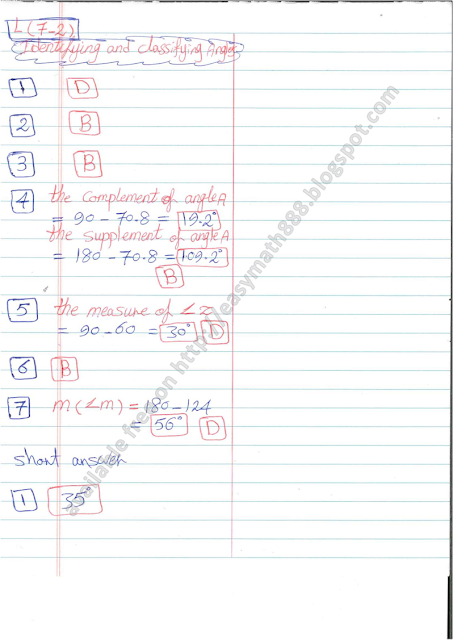 L (7-2)
Identifying and classifying Angles
1 D
2 B
3 B
4 the complement of angle A
= 90 - 70.8 = 19.2°
the supplement of angle A
= 180 - 70.8 = 109.2°
B
5 the measure of ∠z
= 90 - 60 = 30° D
6 B
7 m(∠m) = 180 - 124
= 56° D
short answer
1 35°
available free on http://easymath888.blogspot.com